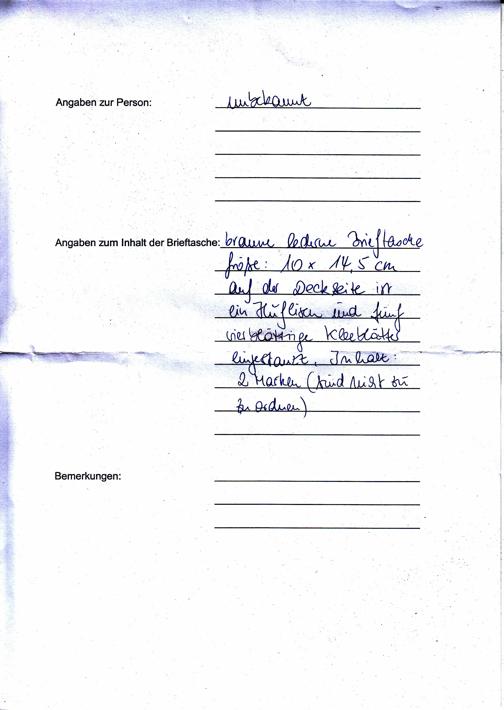 Angaben zur Person: unbekannt
Angaben zum Inhalt der Brieftasche: braune lederne Brieftasche
Größe: 10 x 14,5 cm
Auf der Deckseite ist
ein Hufeisen und fünf
vierblättrige Kleeblätter
eingestanzt. Inhalt:
2 Marken (sind nicht zu
zu ordnen)
Bemerkungen: